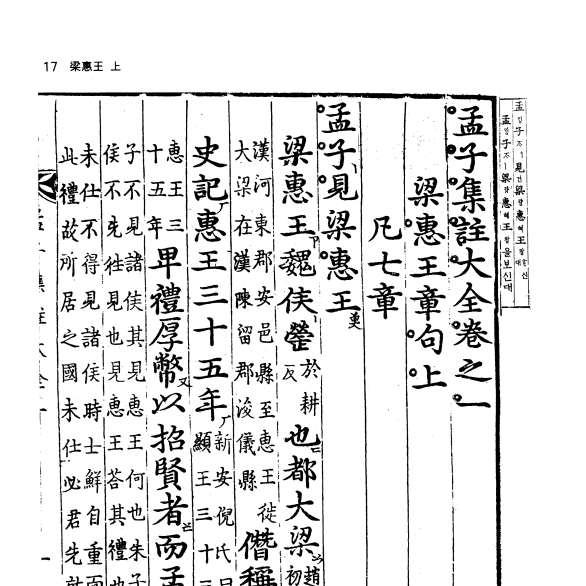 17 梁惠王 上
孟子見梁惠王
孟子ㅣ梁惠王을보신대
孟子集註大全卷之一
梁惠王章句上
凡七章
孟子見梁惠王
梁惠王魏侯罃於耕反也都大梁趙
初
漢河東郡安邑縣至惠王徙
大梁在漢陳留郡浚儀縣
僭稱
史記惠王三十五年新安倪氏曰
顯王三十三
惠王三
十五年
卑禮厚幣以招賢者而孟
子不見諸侯其見惠王何也朱子
侯不先往見也見惠王荅其禮也
未仕不得見諸侯時士鮮自重而
此禮故所居之國未仕必君先就